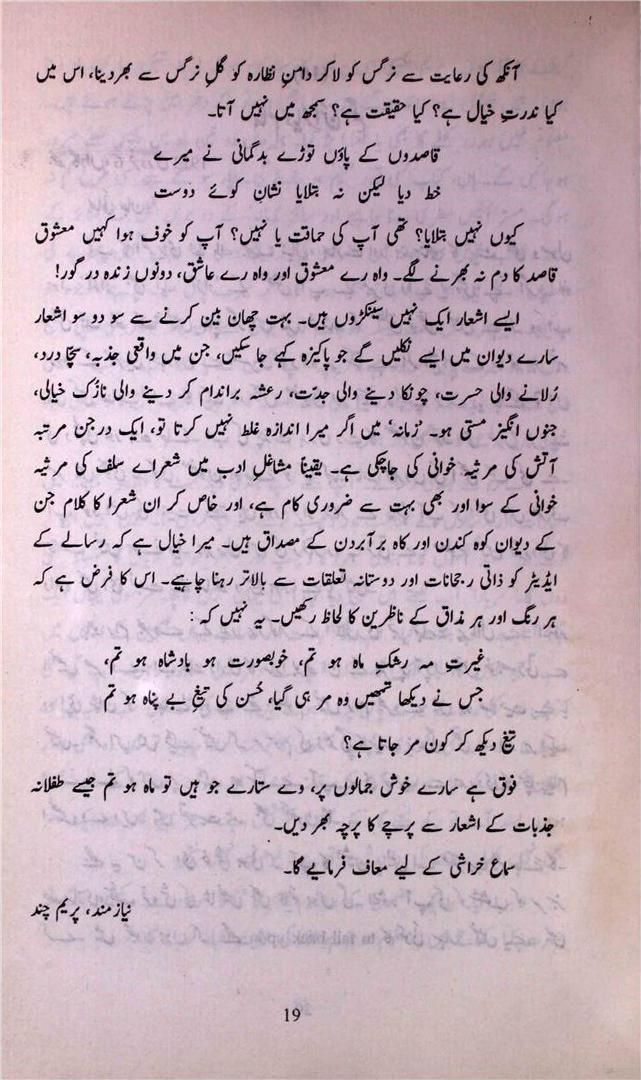 آنکھ کی رعایت سے نرگس کو لاکر دامنِ نظارہ کو گلِ نرگس سے بھردینا، اس میں
کیا ندرتِ خیال ہے؟ کیا حقیقت ہے؟ سمجھ میں نہیں آتا۔
قاصدوں کے پاؤں توڑے بدگمانی نے میرے
خط دیا لیکن نہ بتلایا نشانِ کوئے دوست
کیوں نہیں بتلایا؟ تھی آپ کی حماقت یا نہیں؟ آپ کو خوف ہوا کہیں معشوق
قاصد کا دم نہ بھرنے لگے۔ واہ رے معشوق اور واہ رے عاشق، دونوں زندہ در گور!
ایسے اشعار ایک نہیں سینکڑوں ہیں۔ بہت چھان بین کرنے سے سو دو سو اشعار
سارے دیوان میں ایسے نکلیں گے جو پاکیزہ کہے جا سکیں، جن میں واقعی جذبہ، سچّا درد،
رُلانے والی حسرت، چونکا دینے والی جدّت، رعشہ براندام کر دینے والی نازُک خیالی،
جنوں انگیز مستی ہو۔ 'زمانہ' میں اگر میرا اندازہ غلط نہیں کرتا تو، ایک درجن مرتبہ
آتش کی مرثیہ خوانی کی جاچکی ہے۔ یقیناً مشاغلِ ادب میں شعراے سلف کی مرثیہ
خوانی کے سوا اور بھی بہت سے ضروری کام ہے، اور خاص کر ان شعرا کا کلام جن
کے دیوان کوہ کندن اور کاہ برآبردن کے مصداق ہیں۔ میرا خیال ہے کہ رسالے کے
ایڈیٹر کو ذاتی رجحانات اور دوستانہ تعلقات سے بالاتر رہنا چاہیے۔ اس کا فرض ہے کہ
ہر رنگ اور ہر مذاق کے ناظرین کا لحاظ رکھیں۔ یہ نہیں کہ:
غیرتِ مہ رشکِ ماہ ہو تم، خوبصورت ہو بادشاہ ہو تم،
جس نے دیکھا تمھیں وہ مر ہی گیا، حُسن کی تیغِ بے پناہ ہو تم
تیغ دیکھ کر کون مر جاتا ہے؟
فوق ہے سارے خوش جمالوں پر، وے ستارے جو ہیں تو ماہ ہو تم جیسے طفلانہ
جذبات کے اشعار سے پرچے کا پرچہ بھر دیں۔
سماع خراشی کے لیے معاف فرمایے گا۔
نیازمند، پریم چند
19